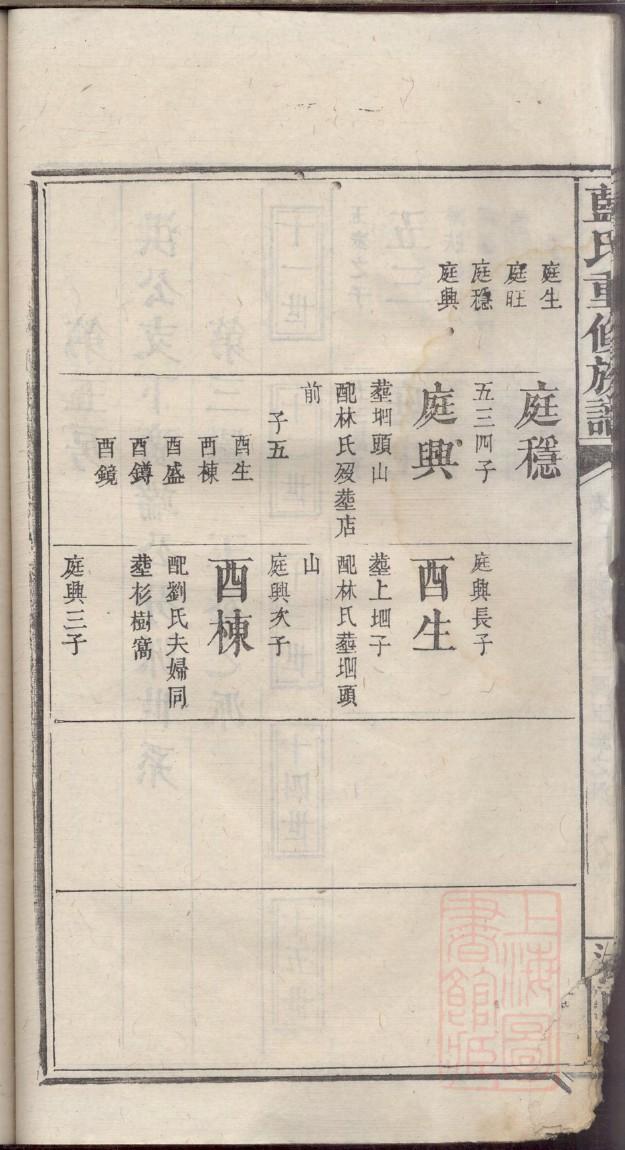 藍氏重修族譜
庭生
庭旺
庭穩
庭興
庭穩
五三四子
庭興
塟垇頭山
配林氏歿塟店
前
子五
酉生
酉棟
酉盛
酉鐏
酉鏡
庭興長子
酉生
塟上垇子
配林氏塟垇頭
山
庭興次子
酉棟
配劉氏夫婦同
塟杉樹窩
庭興三子
上海圖
書館藏